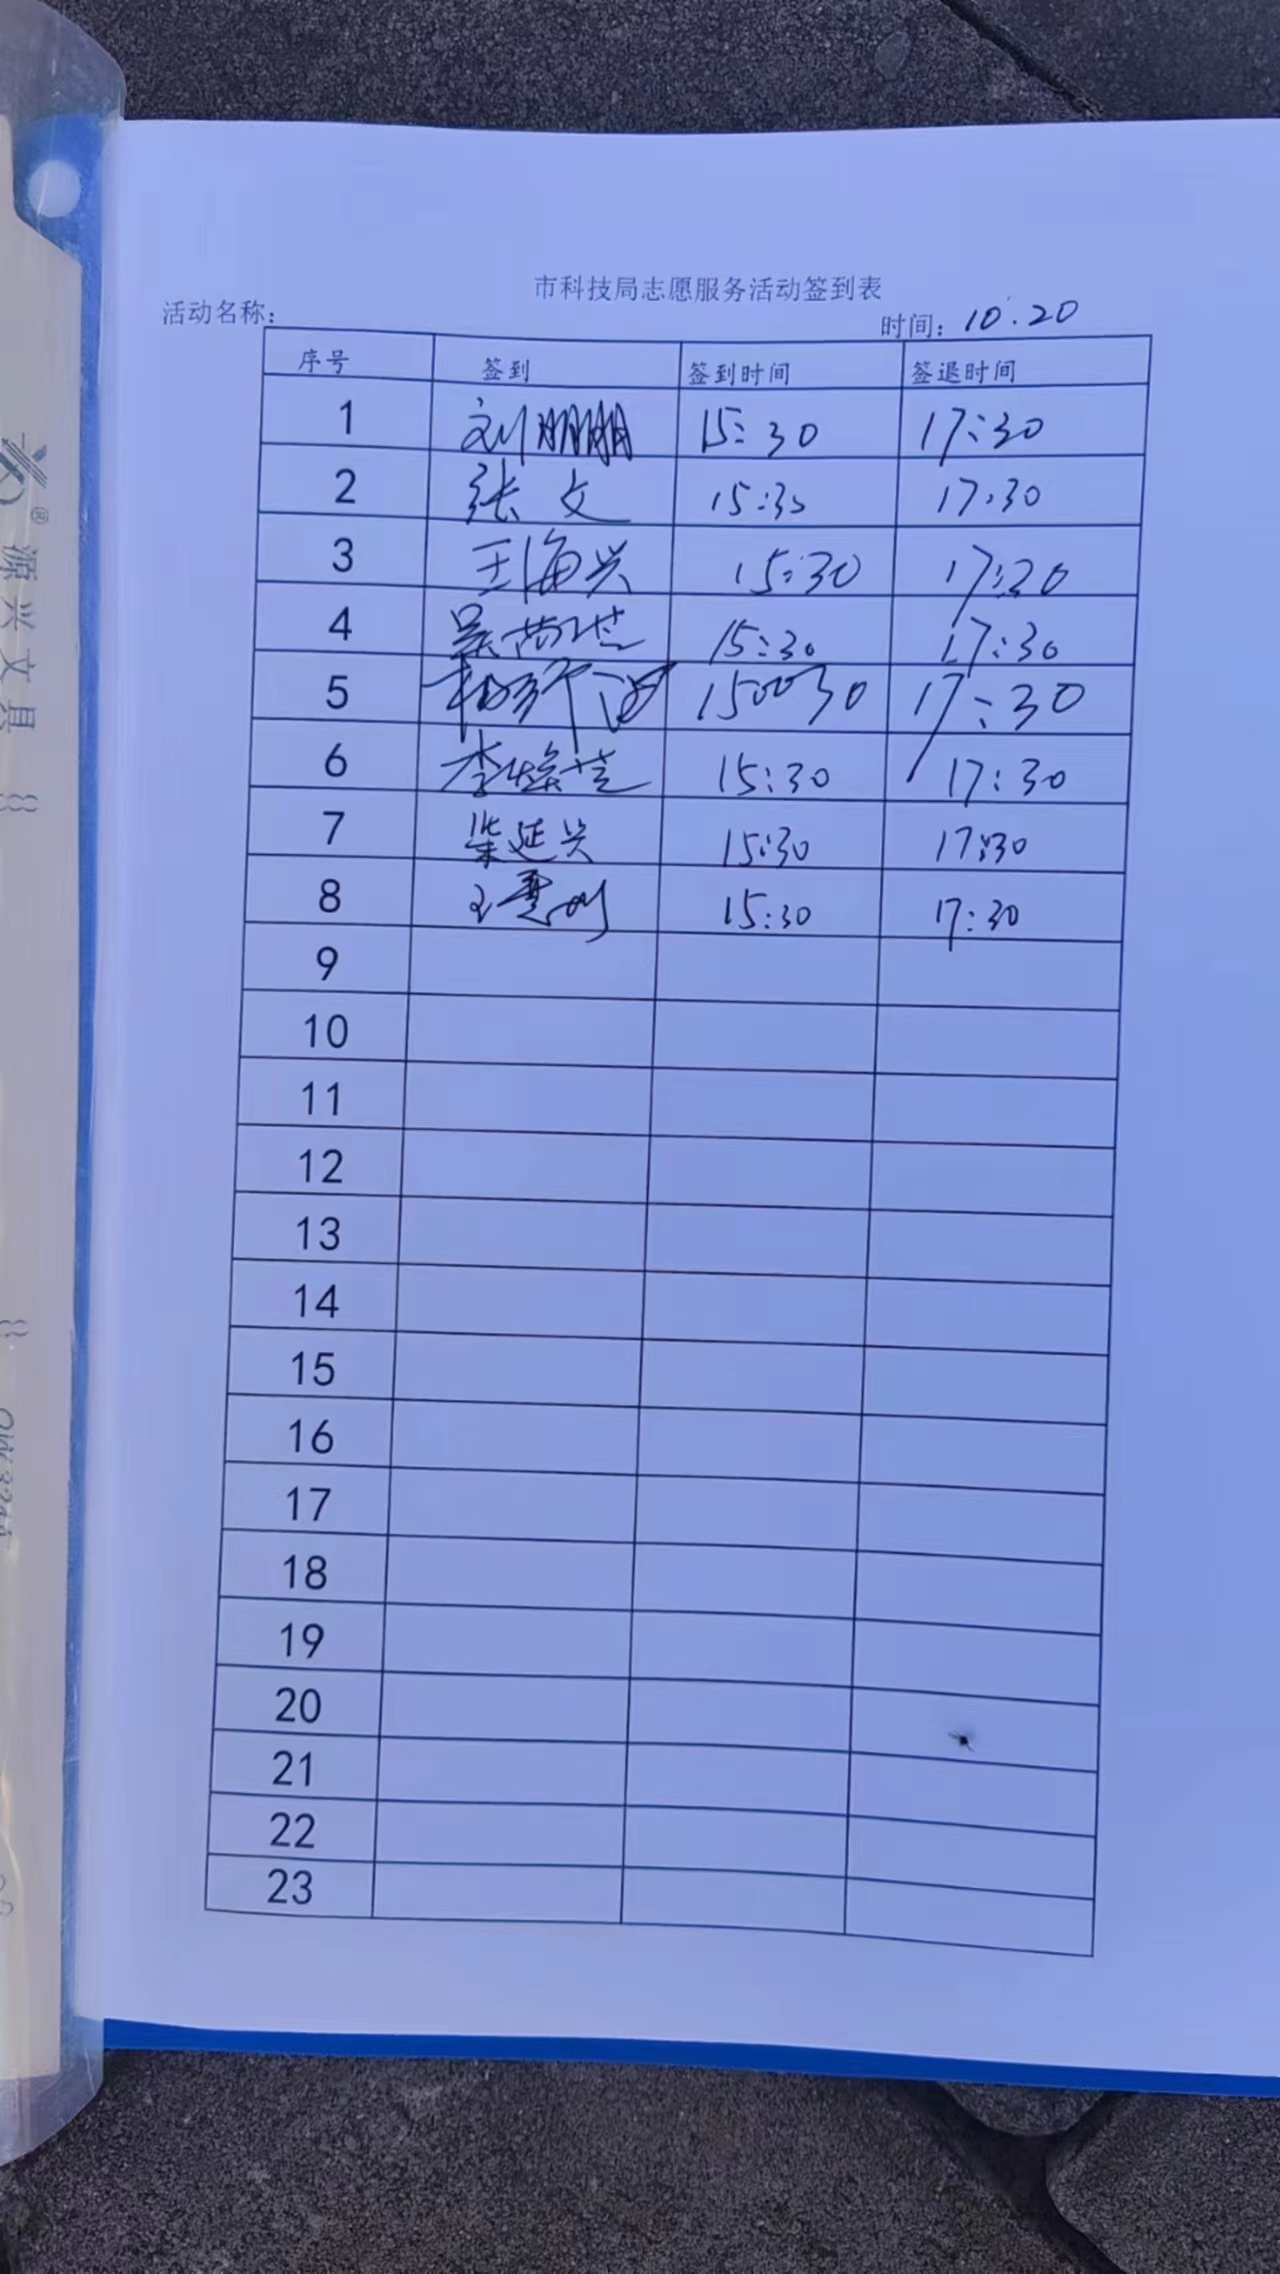 市科技局志愿服务活动签到表
活动名称：
时间：10.20
序号 签到 签到时间 签退时间
1 刘鹏鹏 15:30 17:30
2 张文 15:30 17:30
3 王海兴 15:30 17:30
4 吴 15:30 17:30
5 杨 15:30 17:30
6 李 15:30 17:30
7 柴延兴 15:30 17:30
8 王 15:30 17:30
9
10
11
12
13
14
15
16
17
18
19
20
21
22
23
源兴文具